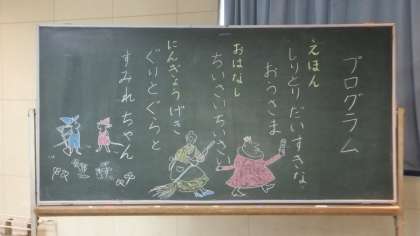 プログラム
えほん
しりとりだいすきな
おうさま
おはなし
ちいさいちいさい
にんぎょうげき
ぐりとぐらと
すみれちゃん